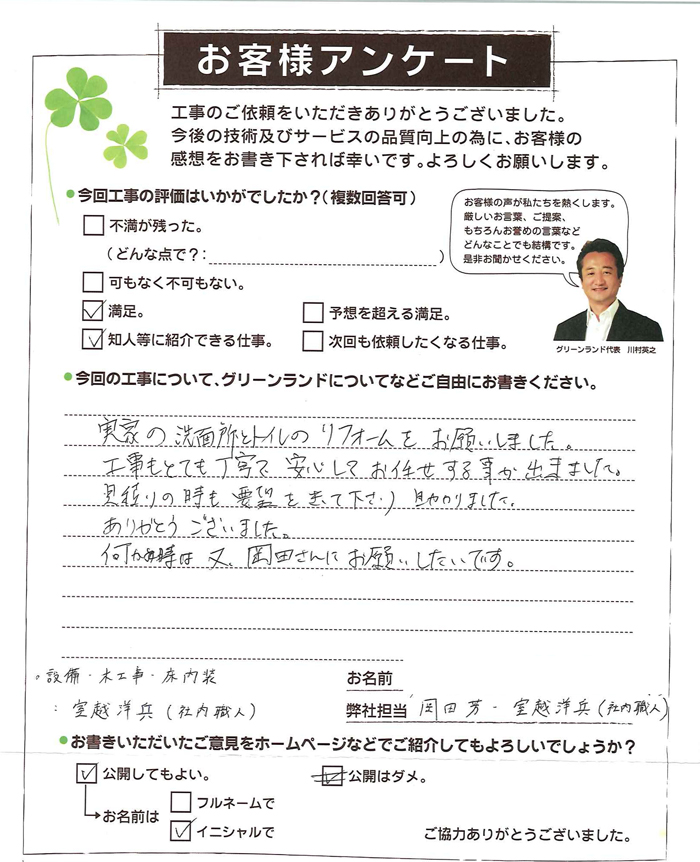 お客様アンケート
工事のご依頼をいただきありがとうございました。
今後の技術及びサービスの品質向上の為に、お客様の
感想をお書き下されば幸いです。よろしくお願いします。
●今回工事の評価はいかがでしたか？（複数回答可）
不満が残った。
（どんな点で？：　）
可もなく不可もない。
満足。
予想を超える満足。
知人等に紹介できる仕事。
次回も依頼したくなる仕事。
お客様の声が私たちを熱くします。
厳しいお言葉、ご提案、
もちろんお誉めの言葉など
どんなことでも結構です。
是非お聞かせください。
グリーンランド代表　川村英之
●今回の工事について、グリーンランドについてなどご自由にお書きください。
実家の洗面所とトイレのリフォームをお願いしました。
工事もとても丁寧で安心してお任せする事が出来ました。
見積りの時も要望を 下さり 助かりました。
ありがとうございました。
何か 時は又、岡田さんにお願いしたいです。
。設備・木工事・床内装
：室越洋兵（社内職人）
お名前
弊社担当　岡田 芳・室越洋兵（社内職人）
●お書きいただいたご意見をホームページなどでご紹介してもよろしいでしょうか？
公開してもよい。
公開はダメ。
お名前は
フルネームで
イニシャルで
ご協力ありがとうございました。